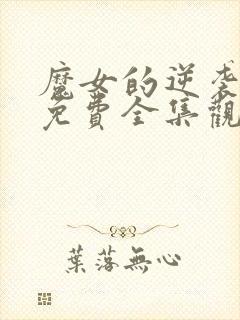 魔女的逆袭
免費全集觀
葉落無心